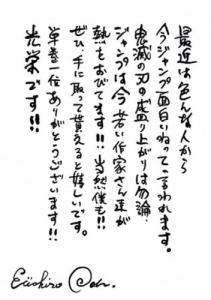 最近は色んな人から
今ジャンプ面白いねって言われます。
鬼滅の刃の盛り上がりは勿論
ジャンプは今若い作家さん達が
熱をおびてます!! 当然僕も!!
ぜひ手に取って貰えると嬉しいです。
栄巻一位ありがとうございます!!
光栄です!!
Eiichiro Oda.